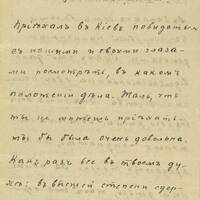 Пріѣхалъ въ Кіевъ повидать
съ ними и своими глаза-
ми посмотрѣть, въ какомъ
положеніи дѣла. Жаль, что
ты не можешь пріѣхать
ты бы была очень довольна.
Какъ разъ все въ твоемъ ду-
хѣ: въ высшей степени сдер-